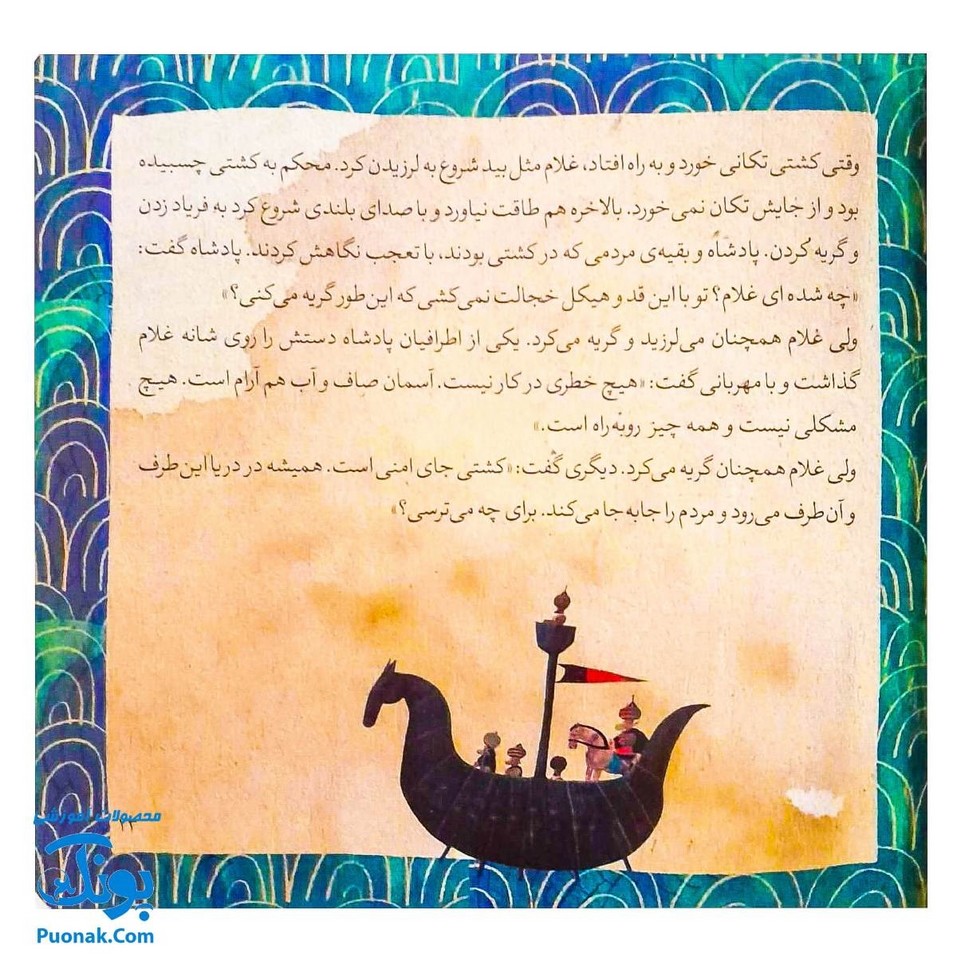 وقتی کشتی تکانی خورد و به راه افتاد، غلام مثل بید شروع به لرزیدن کرد. محکم به کشتی چسبیده
بود و از جایش تکان نمی‌خورد. بالاخره هم طاقت نیاورد و با صدای بلندی شروع کرد به فریاد زدن
و گریه کردن. پادشاه و بقیه‌ی مردمی که در کشتی بودند، با تعجب نگاهش کردند. پادشاه گفت:
«چه شده ای غلام؟ تو با این قد و هیکل خجالت نمی‌کشی که این‌طور گریه می‌کنی؟»
ولی غلام همچنان می‌لرزید و گریه می‌کرد. یکی از اطرافیان پادشاه دستش را روی شانه غلام
گذاشت و با مهربانی گفت: «هیچ خطری در کار نیست. آسمان صاف و آب هم آرام است. هیچ
مشکلی نیست و همه چیز روبه‌راه است.»
ولی غلام همچنان گریه می‌کرد. دیگری گفت: «کشتی جای امنی است. همیشه در دریا این طرف
و آن‌طرف می‌رود و مردم را جابه‌جا می‌کند. برای چه می‌ترسی؟»
محصولات آموزشی
پونک
Puonak.Com